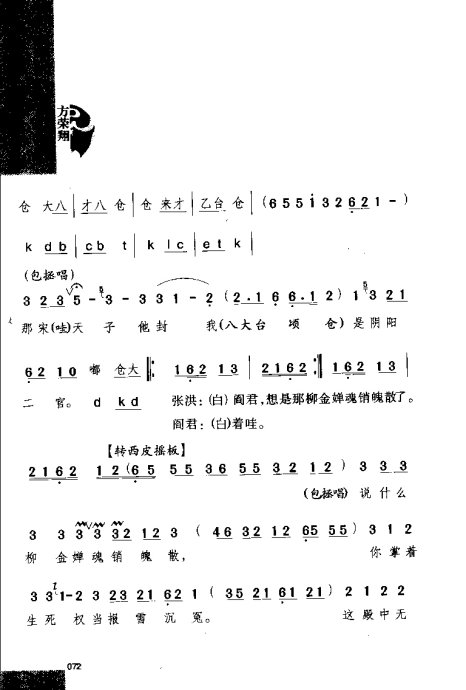 方荣翔
仓 大八 | 才八 仓 | 仓 来才 | 乙台 仓 | (6 5 5 i 3 2 6 2 1 -)
k d b | c b t | k l c | e t k |
(包拯唱)
3 2 3 5 - 3 - 3 3 1 - 2 (2 · 1 6 6 · 1 2) 1 3 2 1
那宋(哇)天 子 他封 我(八大台 项 仓)是阴阳
6 2 1 0 嘟 仓大 ‖: 1 6 2 1 3 | 2 1 6 2 :‖: 1 6 2 1 3 :‖
二 官。 d k d 张洪:(白)阎君,想是那柳金婵魂销魄散了。
阎君:(白)着哇。
【转西皮摇板】
2 1 6 2 1 2 (6 5 5 5 3 6 5 5 3 2 1 2) 3 3 3
(包拯唱) 说 什 么
3 3 3 3 3 2 1 2 3 (4 6 3 2 1 2 6 5 5 5) 3 1 2
柳 金婵魂 销 魄 散, 你 掌着
3 3 1 - 2 3 2 3 2 1 6 2 1 (3 5 2 1 6 1 2 1) 2 1 2 2
生死 权当报 雷 沉 冤。 这殿中无
072